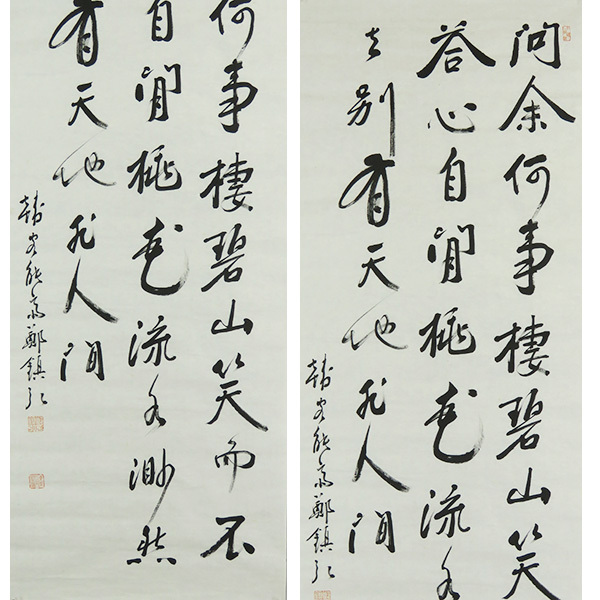 問余何事棲碧山笑
答心自閒桃花流水
去別有天地非人間
韓客 鄭鎮
何事棲碧山笑而不
自閒桃花流水渺然
有天地非人間
韓客 鄭鎮